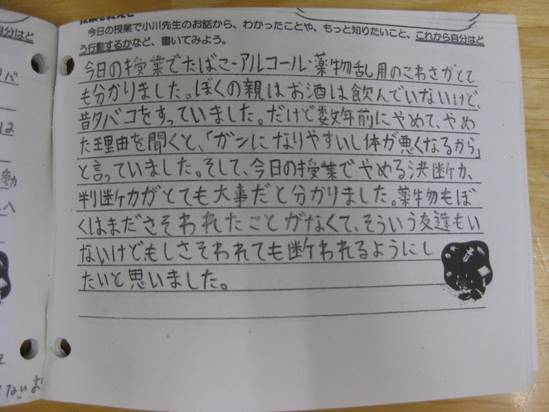 今日の授業で小川先生のお話から、わかったことや、もっと知りたいこと、これから自分はど
う行動するかなど、書いてみよう。
今日の授業でたばこ-アルコール・薬物乱用のこわさがとて
も分かりました。ぼくの親はお酒は飲んでいないけど、
昔タバコをすっていました。だけど数年前にやめて、やめ
た理由を聞くと、「ガンになりやすいし体が悪くなるから」
と言っていました。そして、今日の授業でやめる決断力、
判断力がとても大事だと分かりました。薬物もぼ
くはまださそわれたことがなくて、そういう友達もい
ないけどもしさそわれても断われるようにし
たいと思いました。